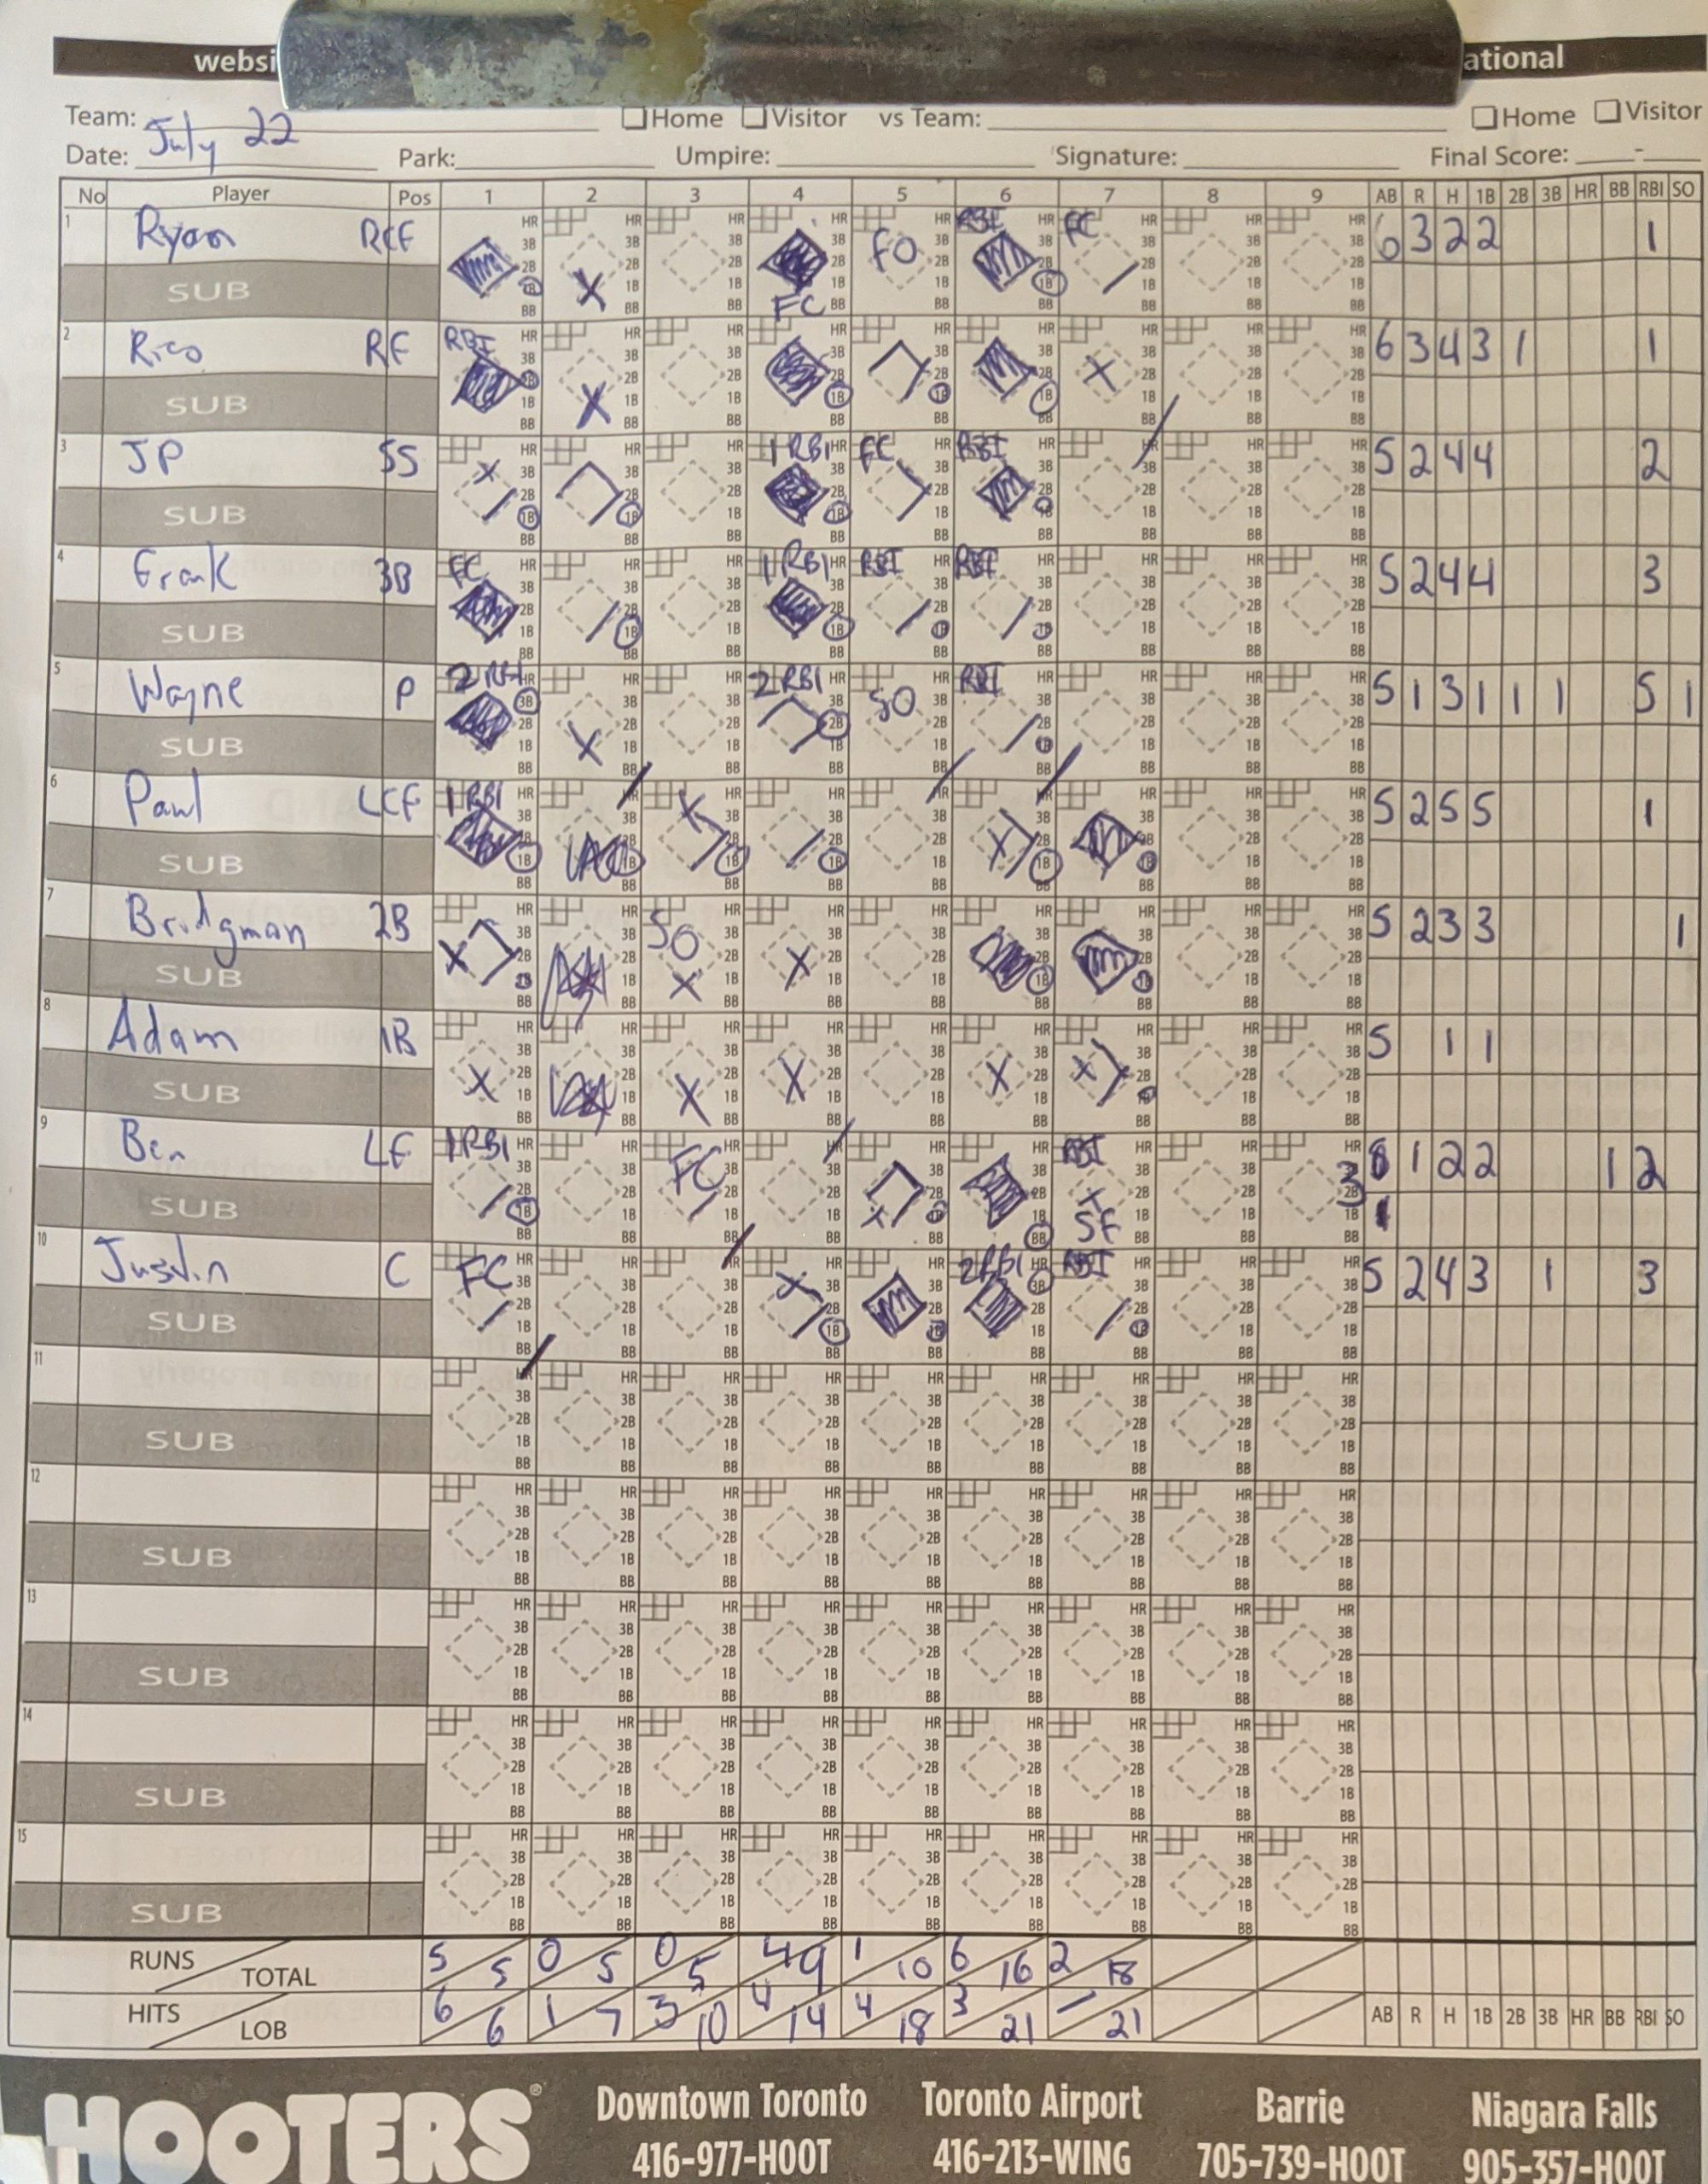 websi ational
Team: Home Visitor vs Team: Home Visitor
Date: July 22 Park: Umpire: Signature: Final Score: -
No Player Pos 1 2 3 4 5 6 7 8 9 AB R H 1B 2B 3B HR BB RBI SO
1 Ryan RCF FC FO RBI FC 6 3 2 2 1
SUB
2 Rico RF RBI 6 3 4 3 1 1
SUB
3 JP SS 1 RBI FC RBI 5 2 4 4 2
SUB
4 Frank 3B FC 1 RBI RBI RBI 5 2 4 4 3
SUB
5 Wayne P 2 RBI 2 RBI SO RBI 5 1 3 1 1 1 5 1
SUB
6 Paul LCF 1 RBI 5 2 5 5 1
SUB
7 Bridgman 2B SO 5 2 3 3 1
SUB
8 Adam 1B 5 1 1
SUB
9 Ben LF 1 RBI FC RBI SF 1 2 2 1 2
SUB
10 Justin C FC 2 RBI RBI 5 2 4 3 1 3
SUB
11
SUB
12
SUB
13
SUB
14
SUB
15
SUB
RUNS TOTAL 5 5 0 5 0 5 4 9 1 10 6 16 2 18
HITS LOB 6 6 1 7 3 10 4 14 4 18 3 21 - 21 AB R H 1B 2B 3B HR BB RBI SO
HOOTERS®
Downtown Toronto Toronto Airport Barrie Niagara Falls
416-977-HOOT 416-213-WING 705-739-HOOT 905-357-HOOT